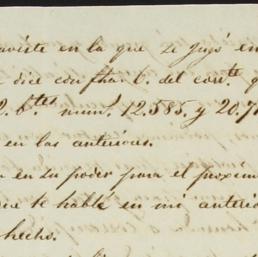 en la que te
dice con fha 6. del corrte. q
2. btes. num. 12.585. y 20.7
en las anteriores.
en su poder para el proxim
te hablé en mi anterio
hecho.